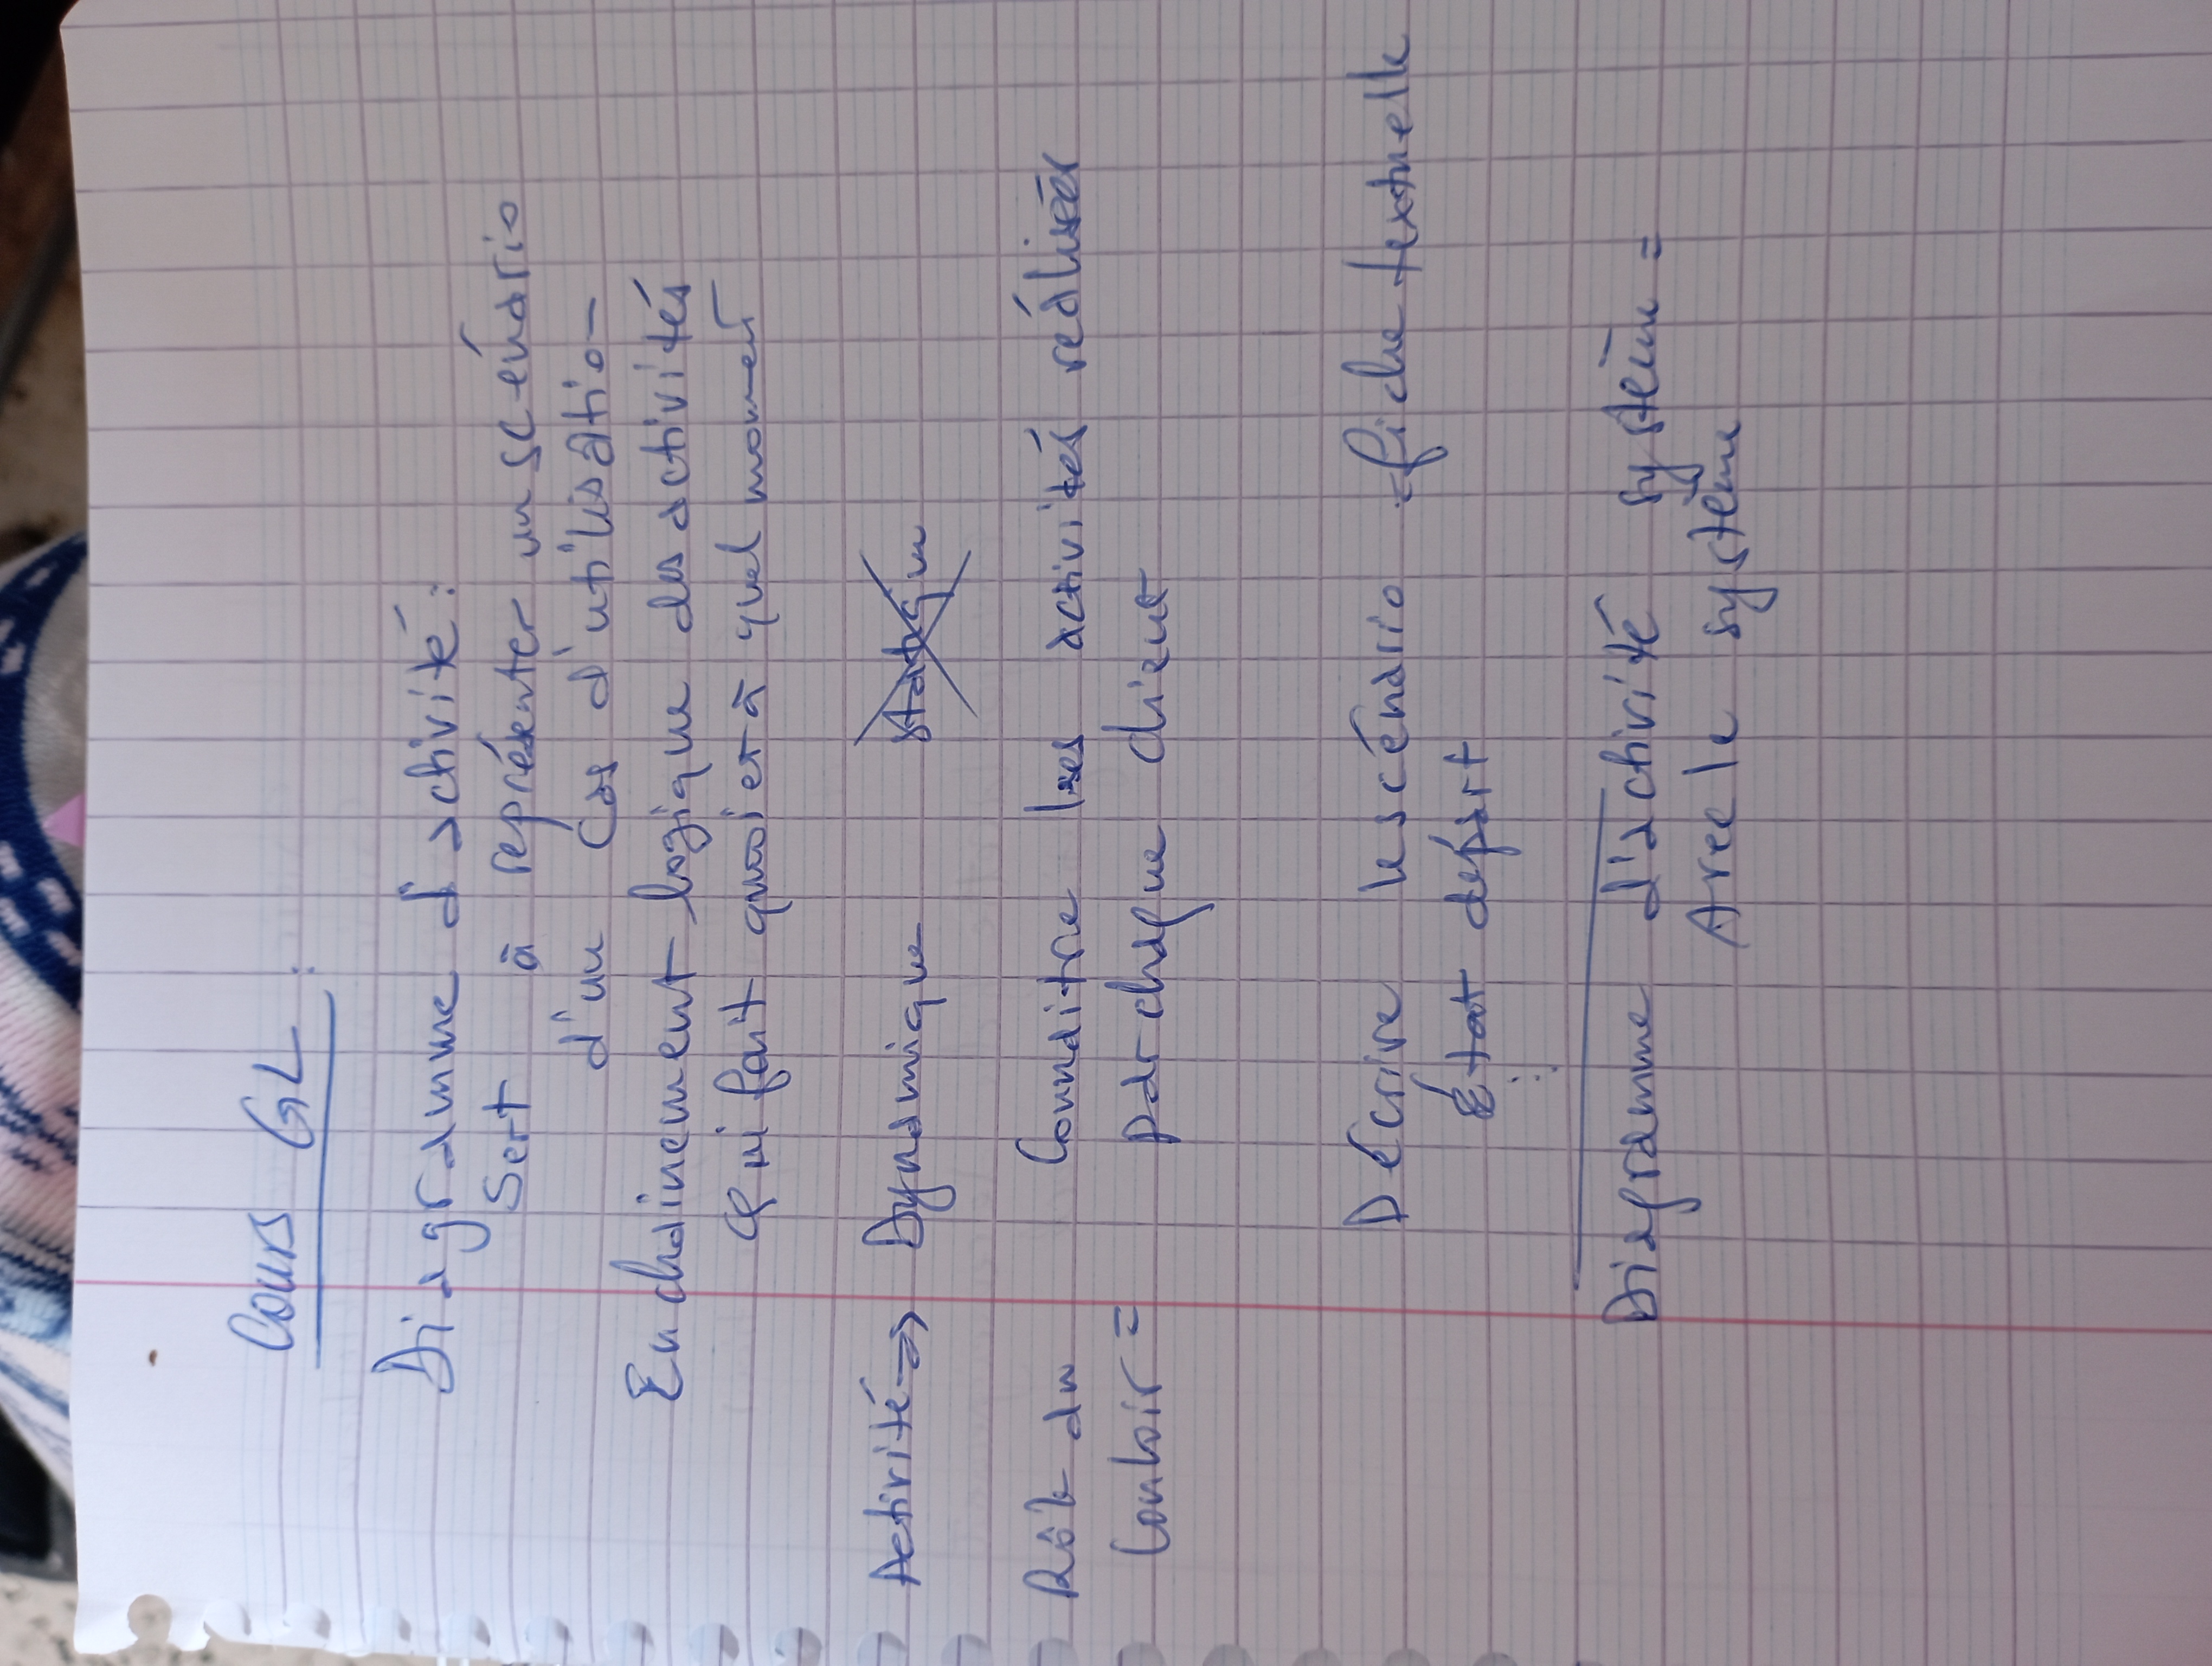 Cours GL :
Diagramme d'activité :
Sert à représenter un scénario
d'un cas d'utilisation
Enchainement logique des activités
Qui fait quoi et à quel moment
Activité => Dynamique Statique
Rôle du Connaitre les activités réaliser
Couloir = par chaque client
Décrire le scénario = fiche textuelle
État départ
:
Diagramme d'activité système =
Avec le système